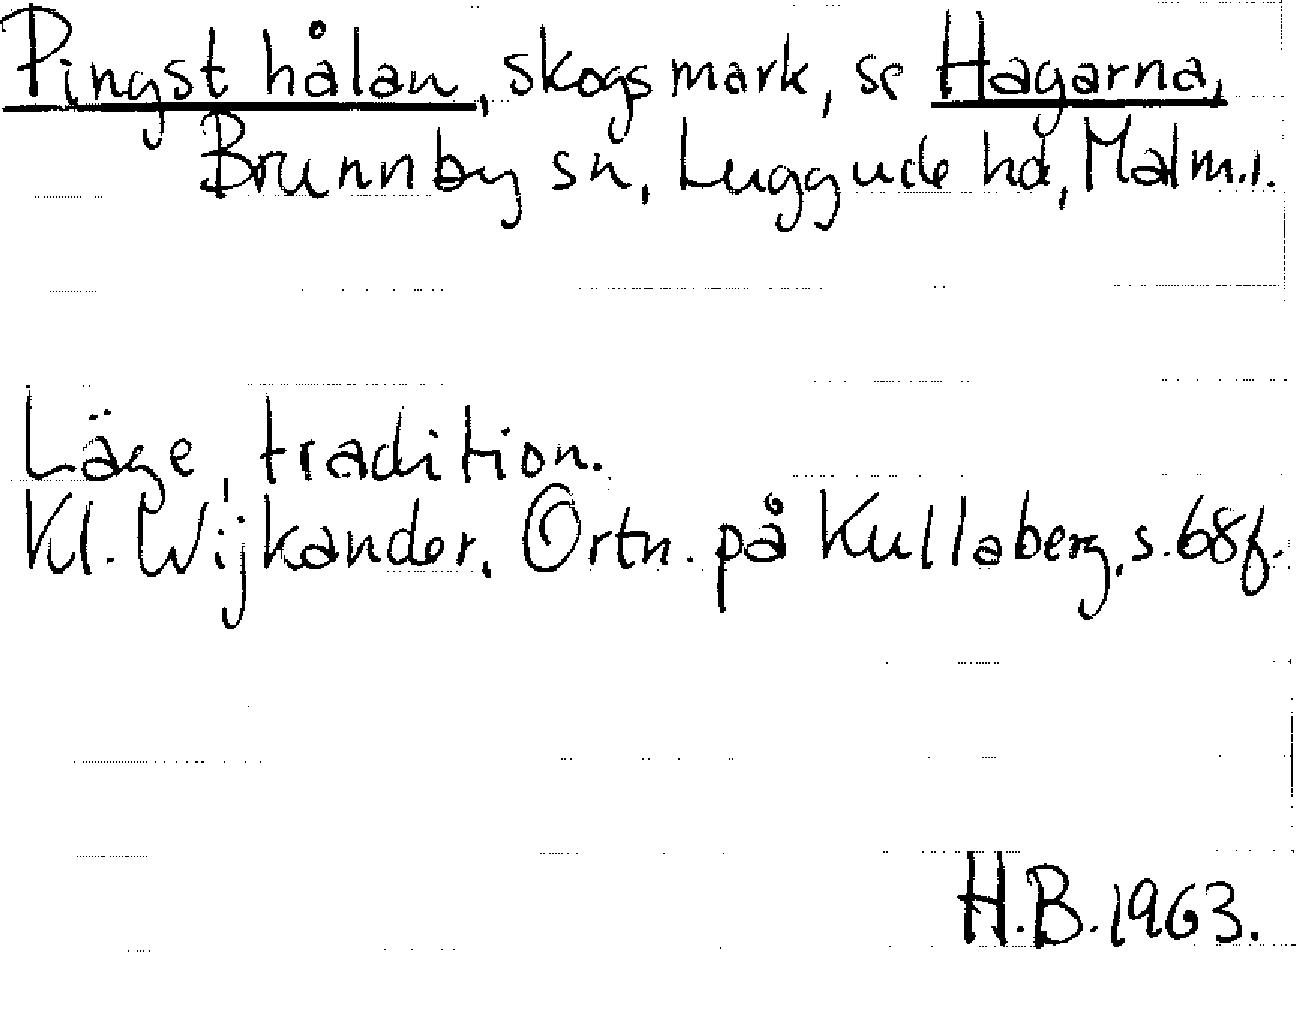 Pingsthålan, skogsmark, se Hagarna,
Brunnby sn, Luggude hd, Malm.l.
Läge, tradition.
Kl. Wijkander, Ortn. på Kullaberg, s. 68f.
H.B. 1963.